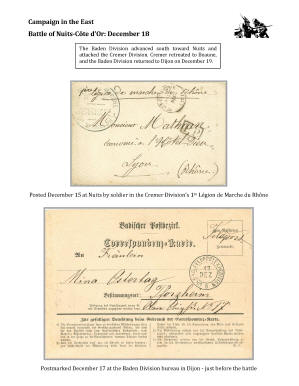 Campaign in the East
Battle of Nuits-Côte d'Or: December 18
The Baden Division advanced south toward Nuits and
attacked the Cremer Division. Cremer retreated to Beaune,
and the Baden Division returned to Dijon on December 19.
1ère Légion de marche du Rhône
Monsieur Mathian
économe à l'Hôtel-Dieu
Lyon
(Rhône)
Posted December 15 at Nuits by soldier in the Cremer Division's 1st Légion de Marche du Rhône
Badischer Postbezirk.
Correspondenz-Karte.
Feldpost
An Fräulein
Mina Ostertag
Bestimmungsort: Pforzheim
Postmarked December 17 at the Baden Division bureau in Dijon - just before the battle